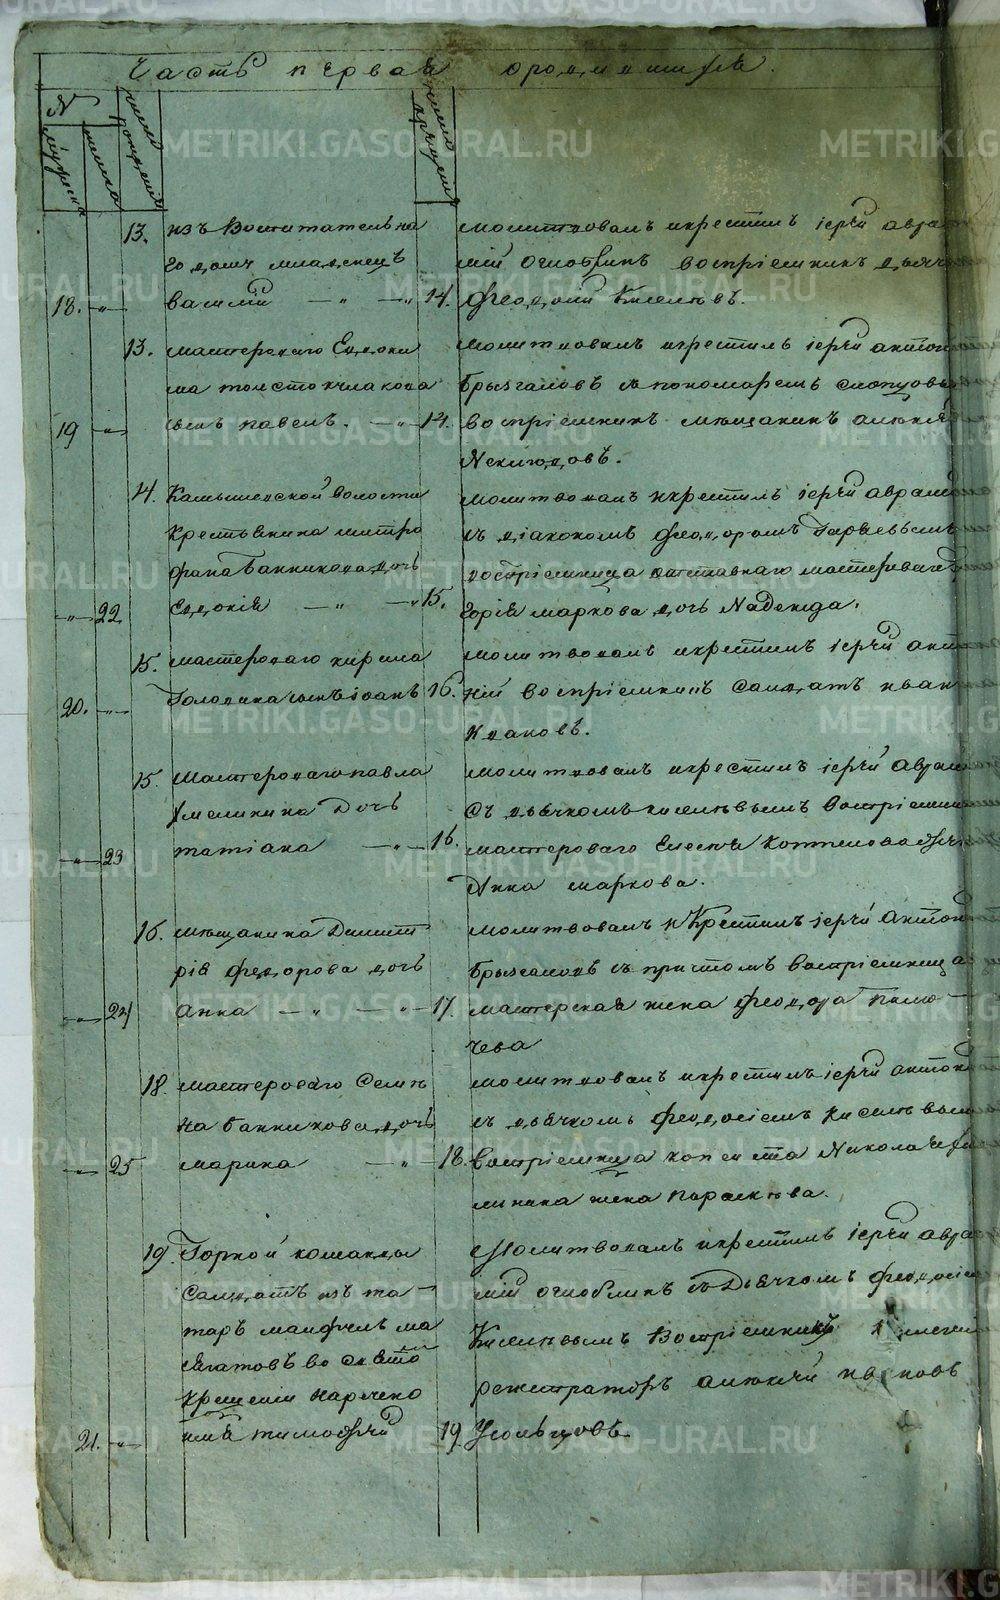 Часть первая о родившихся.
№
мужеска
женска
число рождения
число крещения
13. изъ Воспитательна
го дому младенецъ
18. василий 14.
молитвовалъ икрестилъ іерей авраа
мій Оглоблинъ воспріемникъ дьячекъ
Феодосій Киселевъ.
13. мастероваго Евдоки
ма толстокулакова
19 сынъ павелъ. 14.
молитвовалъ икрестилъ іерей антоній
Брызгаловъ съ пономаремъ
воспріемникъ мещанинъ алексѣй
Неклюдовъ.
14. Камышевской волости
Крестьянина митро
фана Банникова дочь
22 Евдокія 15.
молитвовалъ икрестилъ іерей аврамій
съ діакономъ Феодоромъ
воспріемница отставнаго мастероваго
горія маркова дочь Надежда.
15. мастероваго кирила
20. Голодина сынъ іоанъ 16.
молитвовалъ икрестилъ іерей анто
ній воспріемникъ Солдатъ иванъ
Ивановъ.
15. мастероваго павла
Умелинина Дочь
23 татіана 16.
молитвовалъ икрестилъ іерей аврамій
съ дьячкомъ киселевымъ Воспріемница
мастероваго Елесеъ Коптелова дочь
Анна маркова.
16. мещанина Димит
рія федорова дочь
24 Анна 17.
молитвовалъ и Крестилъ іерей Антоній
Брызгаловъ съ притомъ воспріемница
мастерская жена Феодора Пало
чева
18. мастероваго Семе
на банникова дочь
25 марина 18.
молитвовалъ икрестилъ іерей антоній
съ дьячкомъ Феодосіемъ киселевымъ
воспріемница копеиста Николая
минина жена параскева.
19. Горной команды
Солдатъ изъ та
таръ
во свято
крещеніи наречено
21. имя тимофей 19.
Молитвовалъ икрестилъ іерей авра
мій оглоблинъ съ Дьячкомъ Феодосіемъ
Киселевымъ Воспріемникъ
режистраторъ алексей ивановъ
Усольцовъ
METRIKI.GASO-URAL.RU